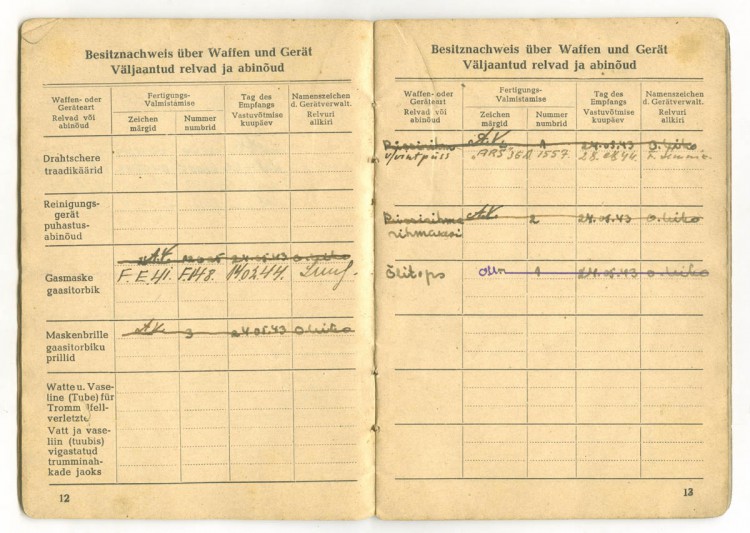 Besitznachweis über Waffen und Gerät
Väljaantud relvad ja abinõud
Waffen- oder
Geräteart
Relvad või
abinõud
Fertigungs-
Valmistamise
Zeichen
märgid
Nummer
numbrid
Tag des
Empfangs
Vastuvõtmise
kuupäev
Namenszeichen
d. Gerätverwalt.
Relvuri
allkiri
Drahtschere
traadikäärid
Reinigungs-
gerät
puhastus-
abinõud
Gasmaske
gaasitorbik
A.V. 24.05.43 O. Leiko
F.E.41. F.148. 14.02.44.
Maskenbrille
gaasitorbiku
prillid
A.V. 3 24.05.43 O. Leiko
Watte u. Vase-
line (Tube) für
Trommelfell-
verletzte
Vatt ja vase-
liin (tuubis)
vigastatud
trumminah-
kade jaoks
12
Besitznachweis über Waffen und Gerät
Väljaantud relvad ja abinõud
Waffen- oder
Geräteart
Relvad või
abinõud
Fertigungs-
Valmistamise
Zeichen
märgid
Nummer
numbrid
Tag des
Empfangs
Vastuvõtmise
kuupäev
Namenszeichen
d. Gerätverwalt.
Relvuri
allkiri
A.V. 1 24.05.43 O. Leiko
v/vintpüss 1557. 28.08.44.
Püssirihma A.V. 2 24.05.43 O. Leiko
Õlitops 1 24.05.43 O. Leiko
13